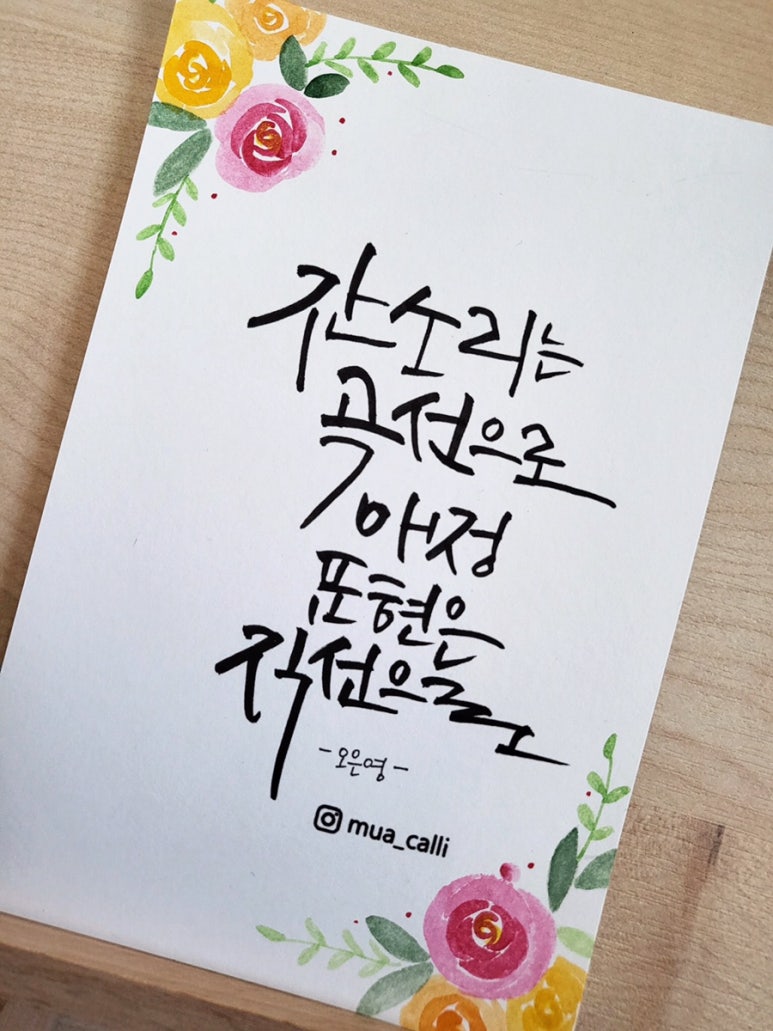 잔소리는
곡선으로
애정
표현은
직선으로
- 오은영 -
mua_calli